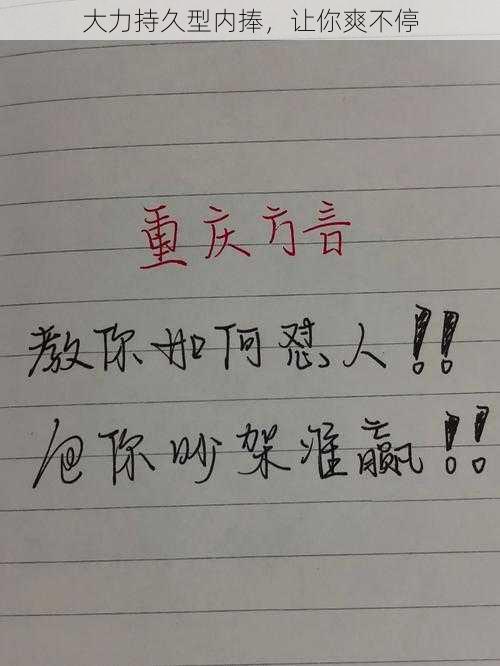 大力持久型内捧，让你爽不停
重庆方言
教你如何怼人!!
包你吵架准赢!!